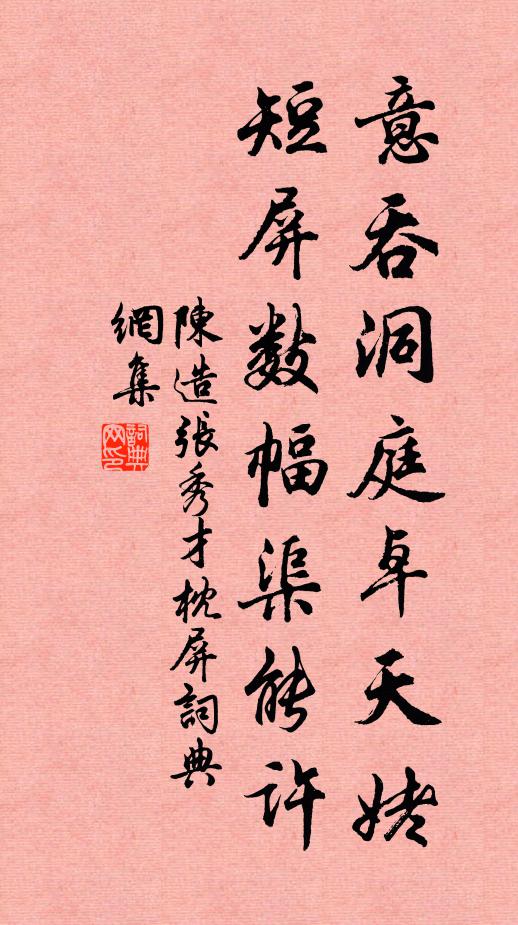 意吞洞庭卓天姥
短屏數幅渠能許
陳造張秀才枕屏詞典
網集
詞典
网印